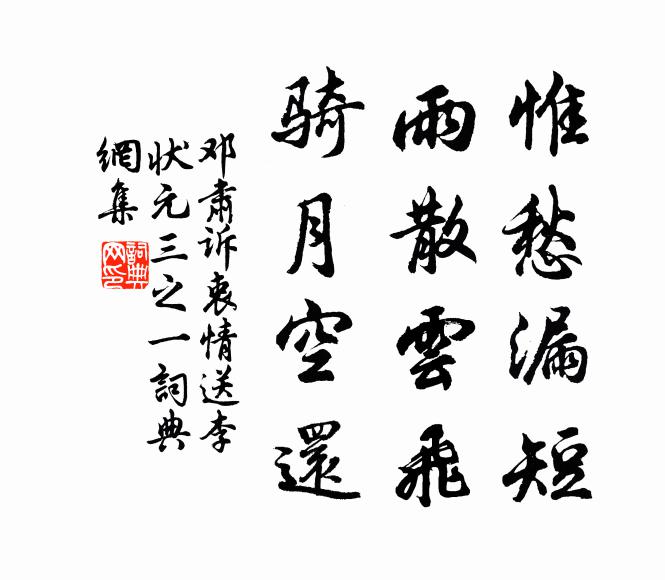 惟愁漏短
雨散雲飛
骑月空還
邓肅诉衷情送李
状元三之一詞典
網集
詞典
网印